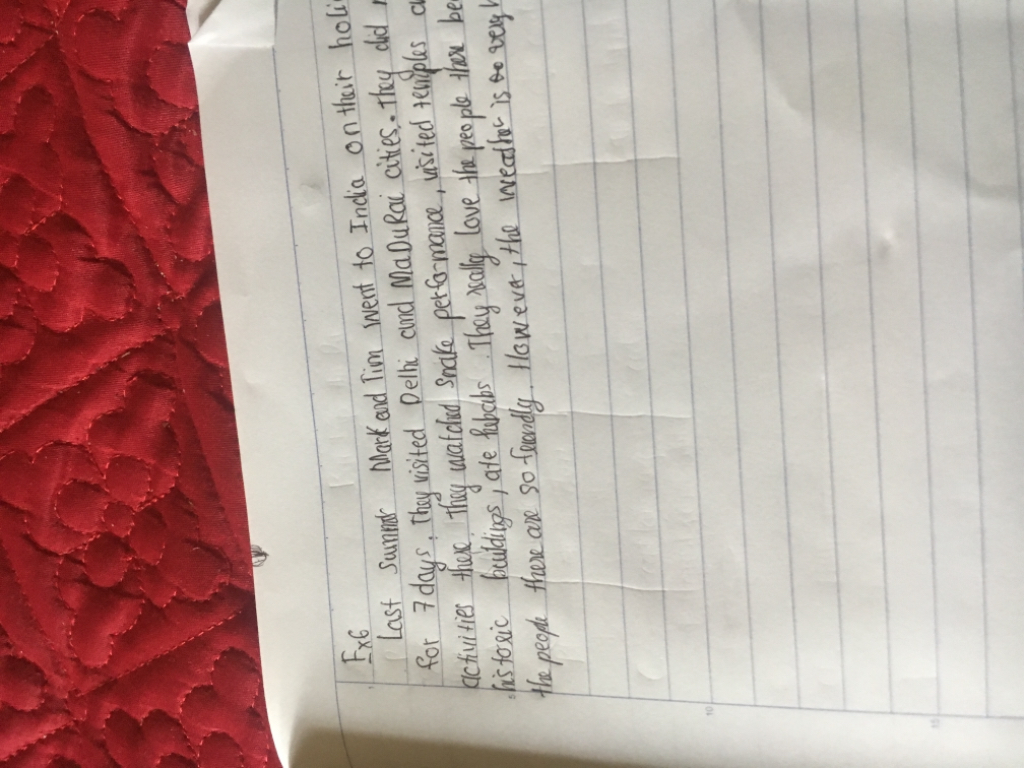 Ex6
Last summer Mark and Tim went to India on their holi
for 7 days. They visited Delhi and MaDuRai cities. they did
activities there. they watched snake performance, visited temples
historic buildings, ate kebabs. They really love the people there
the people there are so friendly. However, the weather is so very
10
15